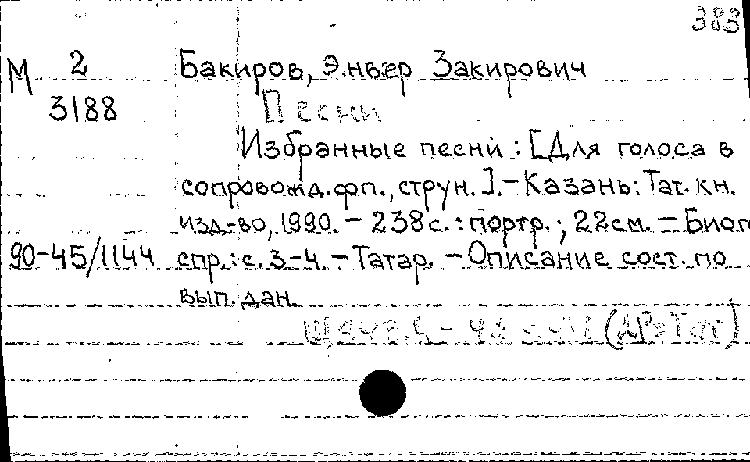 383
М 2 Бакиров, Энвер Закирович
3188 Песни
Избранные песни : [Для голоса в
сопровожд. фп., струн.]. - Казань: Тат. кн.
изд-во, 1990. - 238 с. : портр. ; 22 см. - Биогр.
90-45/1144 спр.: с. 3-4. - Татар. - Описание сост. по
вып. дан.